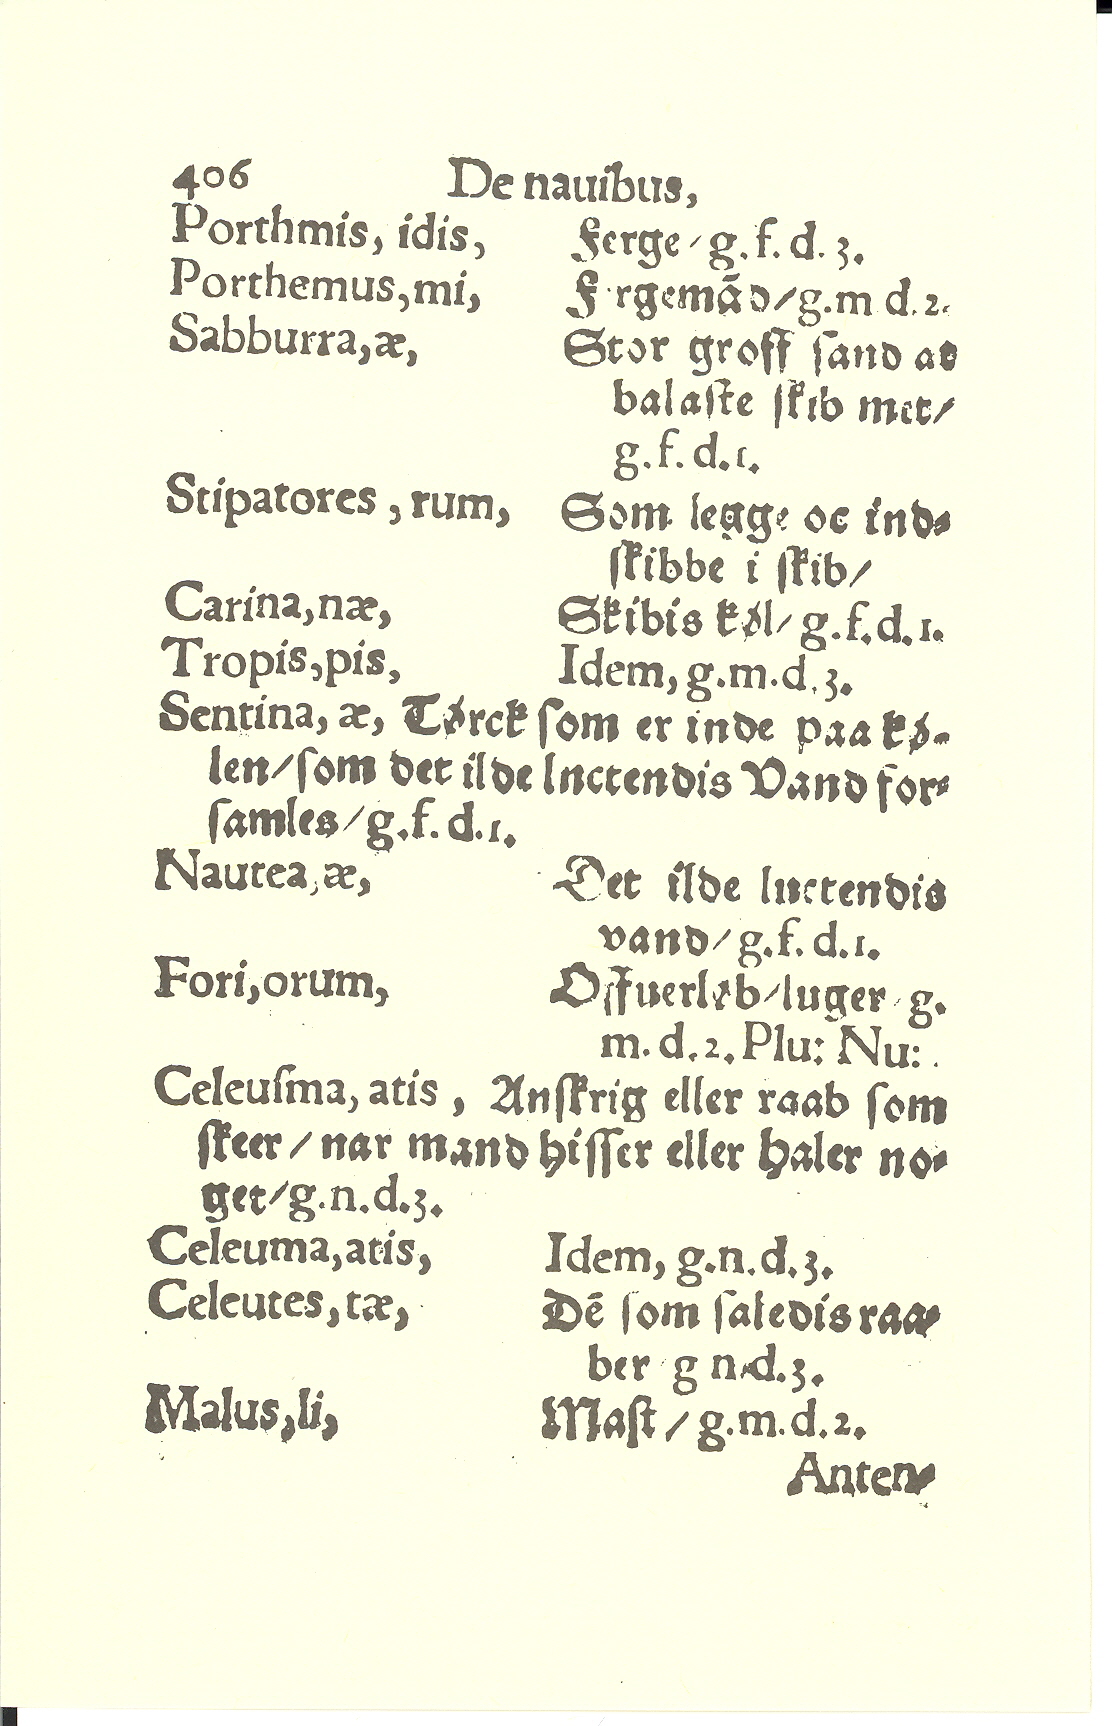 406 De nauibus,
Porthmis, idis, Ferge/g.f.d.3.
Porthemus,mi, F rgemãd/g.m d.2.
Sabburra,æ, Stor groff ſand at
balaſte ſkib met/
g.f.d.1.
Stipatores, rum, Som legge oc ind⸗
ſkibbe i ſkib/
Carina,næ, Skibis køl/g.f.d.1.
Tropis,pis, Idem, g.m.d.3.
Sentina, æ, Tørck ſom er inde paa kø⸗
len/ſom det ilde luctendis Vand for⸗
ſamles/g.f.d.1.
Nautea,æ, Det ilde luctendis
vand/g.f.d.1.
Fori,orum, Offuerløb/luger/g.
m.d.2.Plu: Nu:.
Celeuſma, atis, Anſkrig eller raab ſom
ſkeer/nar mand hiſſer eller haler no⸗
get/g.n.d.3.
Celeuma,atis, Idem, g.n.d.3.
Celeutes,tæ, Dē ſom ſaledis raa⸗
ber g n.d.3.
Malus,li, Maſt/g.m.d.2.
Anten⸗